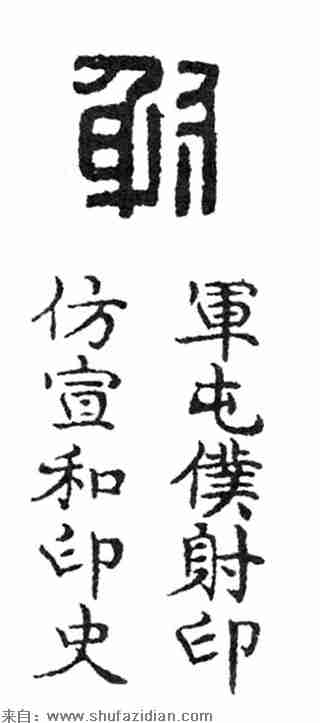 射
軍屯僕射印
仿宣和印史
来自：www.shufazidian.com